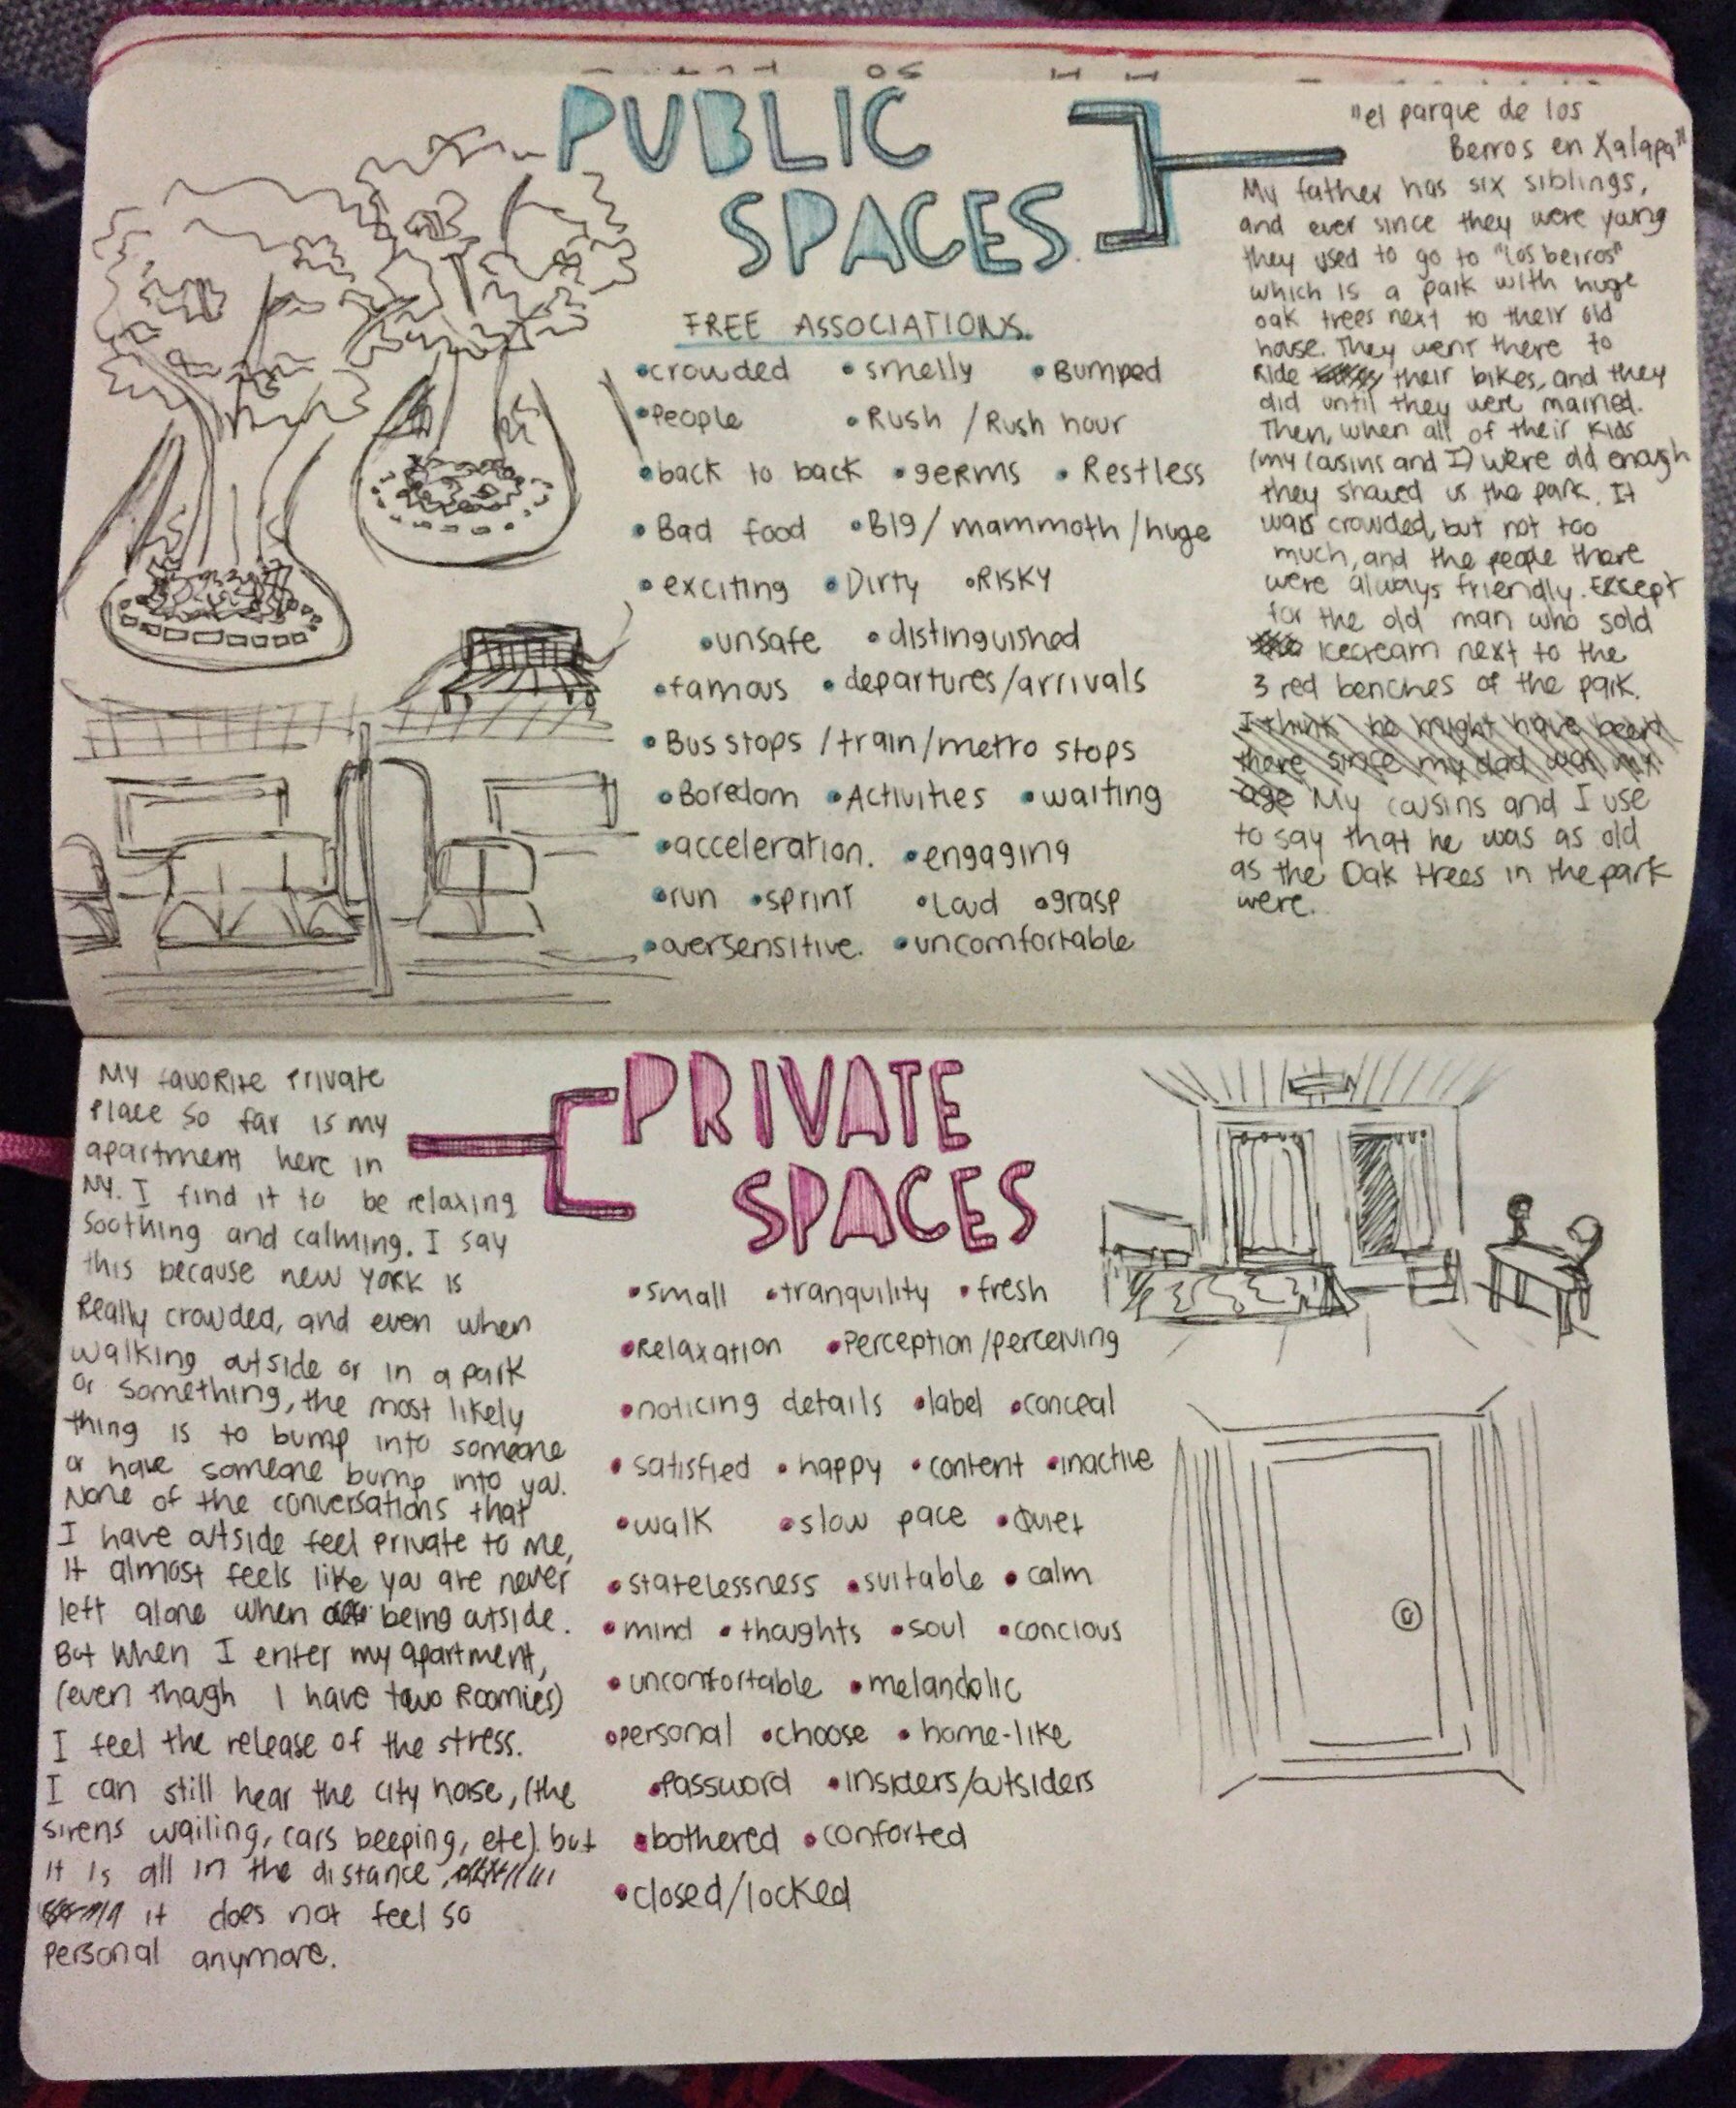 PUBLIC
SPACES
FREE ASSOCIATIONS.
•crowded •smelly •Bumped
•People •Rush /Rush hour
•back to back •germs •Restless
•Bad food •Big/mammoth/huge
•exciting •Dirty •RISKY
•unsafe •distinguished
•famous •departures/arrivals
•Bus stops /train/metro stops
•Boredom •Activities •waiting
•acceleration. •engaging
•run •sprint •Loud •grasp
•oversensitive. •uncomfortable
"el parque de los
Berros en Xalapa"
My father has six siblings,
and ever since they were young
they used to go to "Los berros"
which is a park with huge
oak trees next to their old
house. They went there to
Ride their bikes, and they
did until they were married.
Then, when all of their kids
(my cousins and I) were old enough
they showed us the park. It
was crowded, but not too
much, and the people there
were always friendly. Except
for the old man who sold
icecream next to the
3 red benches of the park.
I think he might have been
there since my dad was my
age My cousins and I use
to say that he was as old
as the Oak trees in the park
were.
My favorite Private
Place so far is my
apartment here in
NY. I find it to be relaxing
soothing and calming. I say
this because new YORK is
Really crowded, and even when
walking outside or in a park
or something, the most likely
thing is to bump into someone
or have someone bump into you.
None of the conversations that
I have outside feel private to me,
it almost feels like you are never
left alone when being outside.
But when I enter my apartment,
(even though I have two Roomies)
I feel the release of the stress.
I can still hear the city noise, (the
sirens wailing, cars beeping, etc) but
it is all in the distance,
it does not feel so
personal anymore.
PRIVATE
SPACES
•small •tranquility •fresh
•Relaxation •Perception/perceiving
•noticing details •label •conceal
•satisfied •happy •content •inactive
•walk •slow pace •Quiet
•statelessness •suitable •calm
•mind •thoughts •soul •concious
•uncomfortable •melancolic
•personal •choose •home-like
•Password •insiders/outsiders
•bothered •conforted
•closed/locked